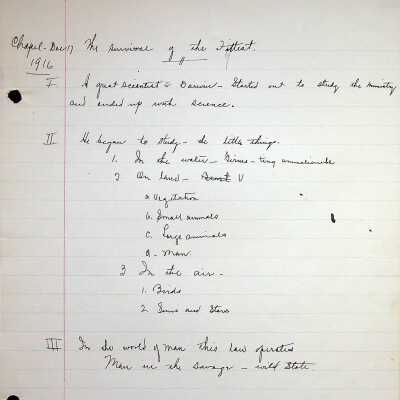 Chapel - Dec 17 The survival of the Fittest.
1916
I. A great scientist Darwin - Started out to study the ministry
and ended up with science.
II He began to study - the little things.
1. In the water - Germs - tiny
2 On land - V
a Vegitation
b. Small animals
c. Large animals
d - Man
3 In the air -
1. Birds
2. Suns and Stars
III In the world of man this law operates
Man in the savage - wild State.